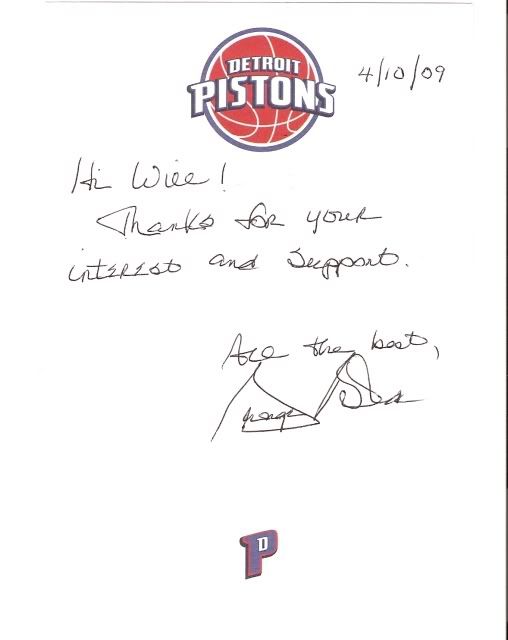 DETROIT
PISTONS
4/10/09
Hi Will!
Thanks for your
interest and support.
All the best,
George
PD